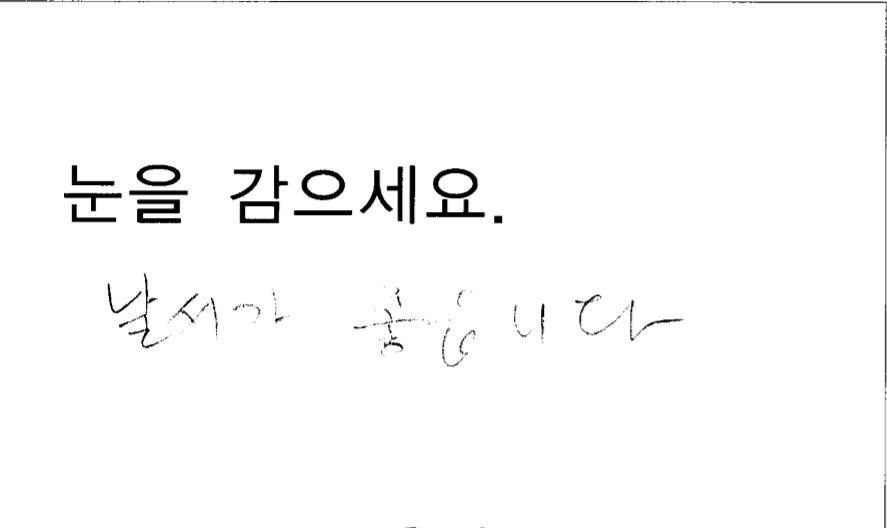 눈을 감으세요.
날서가 좋습니다